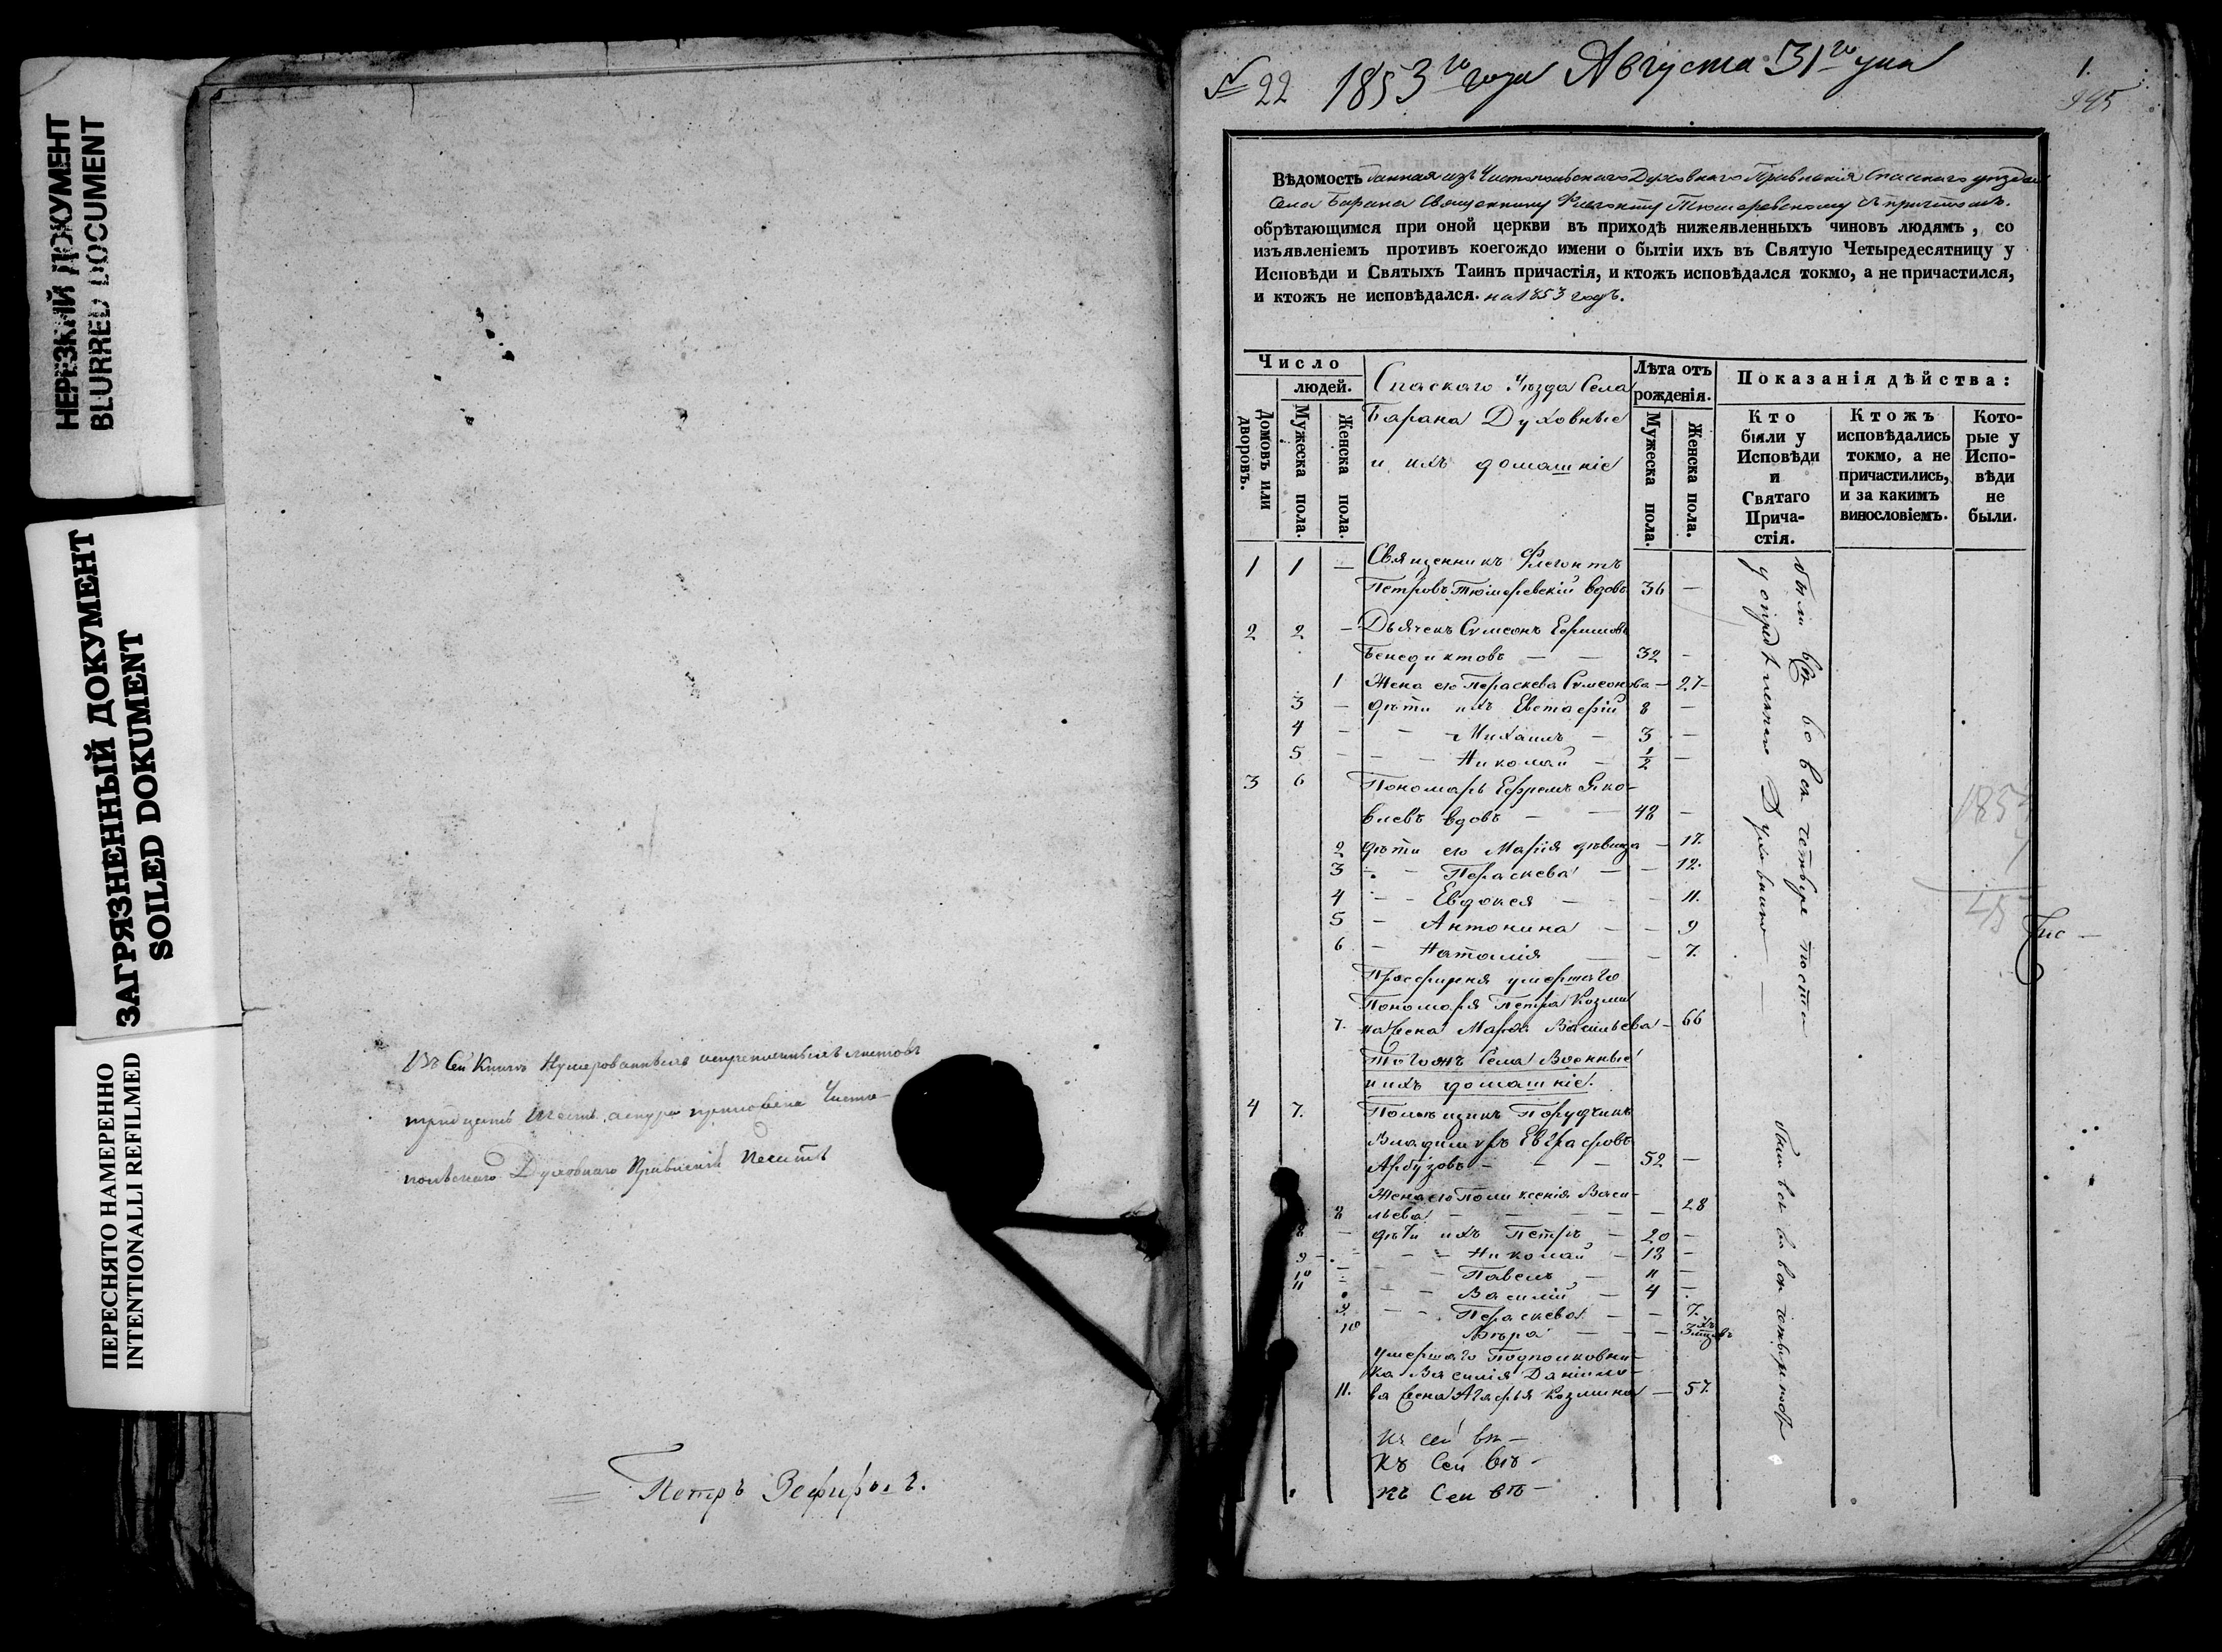 НЕРЕЗКИЙ ДОКУМЕНТ
BLURRED DOCUMENT
ЗАГРЯЗНЕННЫЙ ДОКУМЕНТ
SOILED DOKUMENT
ПЕРЕСНЯТО НАМЕРЕННО
INTENTIONALLI REFILMED
Въ Сей Книгѣ Нумерованныхъ листовъ
тридцать Чисто-
польскаго Духовнаго Правленія Печать
Петръ Зефировъ.
№ 22 1853 го года Августа 31 го дня
1.
995
Вѣдомость данная изъ Чистопольскаго Духовнаго Правленія Спасскаго уѣзда
Села Барана Священнику Флегонту Тюшеревскому съ причтомъ.
обрѣтающимся при оной церкви въ приходѣ нижеявленныхъ чиновъ людямъ, со
изъявленіемъ противъ коегождо имени о бытіи ихъ въ Святую Четыредесятницу у
Исповѣди и Святыхъ Таинъ причастія, и ктожъ исповѣдался токмо, а не причастился,
и ктожъ не исповѣдался. на 1853 годъ.
Число
людей.
Домовъ или дворовъ.
Мужеска пола.
Женска пола.
Спаскаго Уѣзда Села
Барана Духовные
и ихъ домашніе
Лѣта отъ рожденія.
Мужеска пола.
Женска пола.
Показанія дѣйства:
Кто были у Исповѣди и Святаго Прича-стія.
Ктожъ исповѣдались токмо, а не причастились, и за какимъ винословіемъ.
Кото-рые у Испо-вѣди не были.
1 1 — Священникъ Флегонтъ
Петровъ Тюшеревскій вдовъ 36 —
2 2 — Дьячекъ Сѵмеонъ Ефимовъ
Бенедиктовъ — — 32 —
1 Жена его Параскева Сѵмеонова — 27 —
3 — дѣти ихъ Евстафій 8 —
4 — — — Михаилъ — 3 —
5 — — — Николай — 1/2 —
3 6 Пономарь Ефремъ Яко-
влевъ вдовъ — — 48 —
2 дѣти его Марія дѣвица — 17.
3 — — Параскева — — 12.
4 — — Евдокея — — 11.
5 — Антонина — — 9
6 — Наталія — — 7.
Просфирня умершаго
Пономаря Петра Козми
7. на жена Марѳа Васильева — 66
Тогожъ Села Военные
и ихъ домашніе.
4 7. Помѣщикъ Поручикъ
Владимиръ Евграфовъ
Арбузовъ — — — 52 —
Жена его Поликсенія Васи-
8 льева — — — — — 28
8 — дѣти ихъ Петръ — 20 —
9 — — — Николай — 13 —
10 — — Павелъ — 11 —
11 — — Василій — 4 —
9. — — Параскева — — 7.
10 Вѣра — — —
умершаго Подполковни-
ка Василія Данило-
11. ва жена Агафья Козмина — 57.
Къ сей вѣ —
Къ Сей вѣ —
Къ Сей вѣ —
были всѣ во вся четыре поста
у Духовника —
были всѣ во вся четыре поста
1853
45